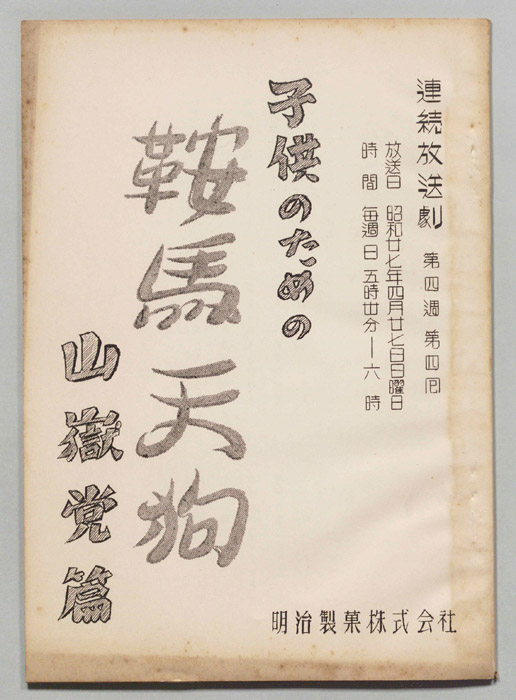 連続放送劇 第四週 第四回
放送日 昭和廿七年四月廿七日日曜日
時間 毎週日 五時廿分—六時
子供のための
鞍馬天狗
山嶽党篇
明治製菓株式会社